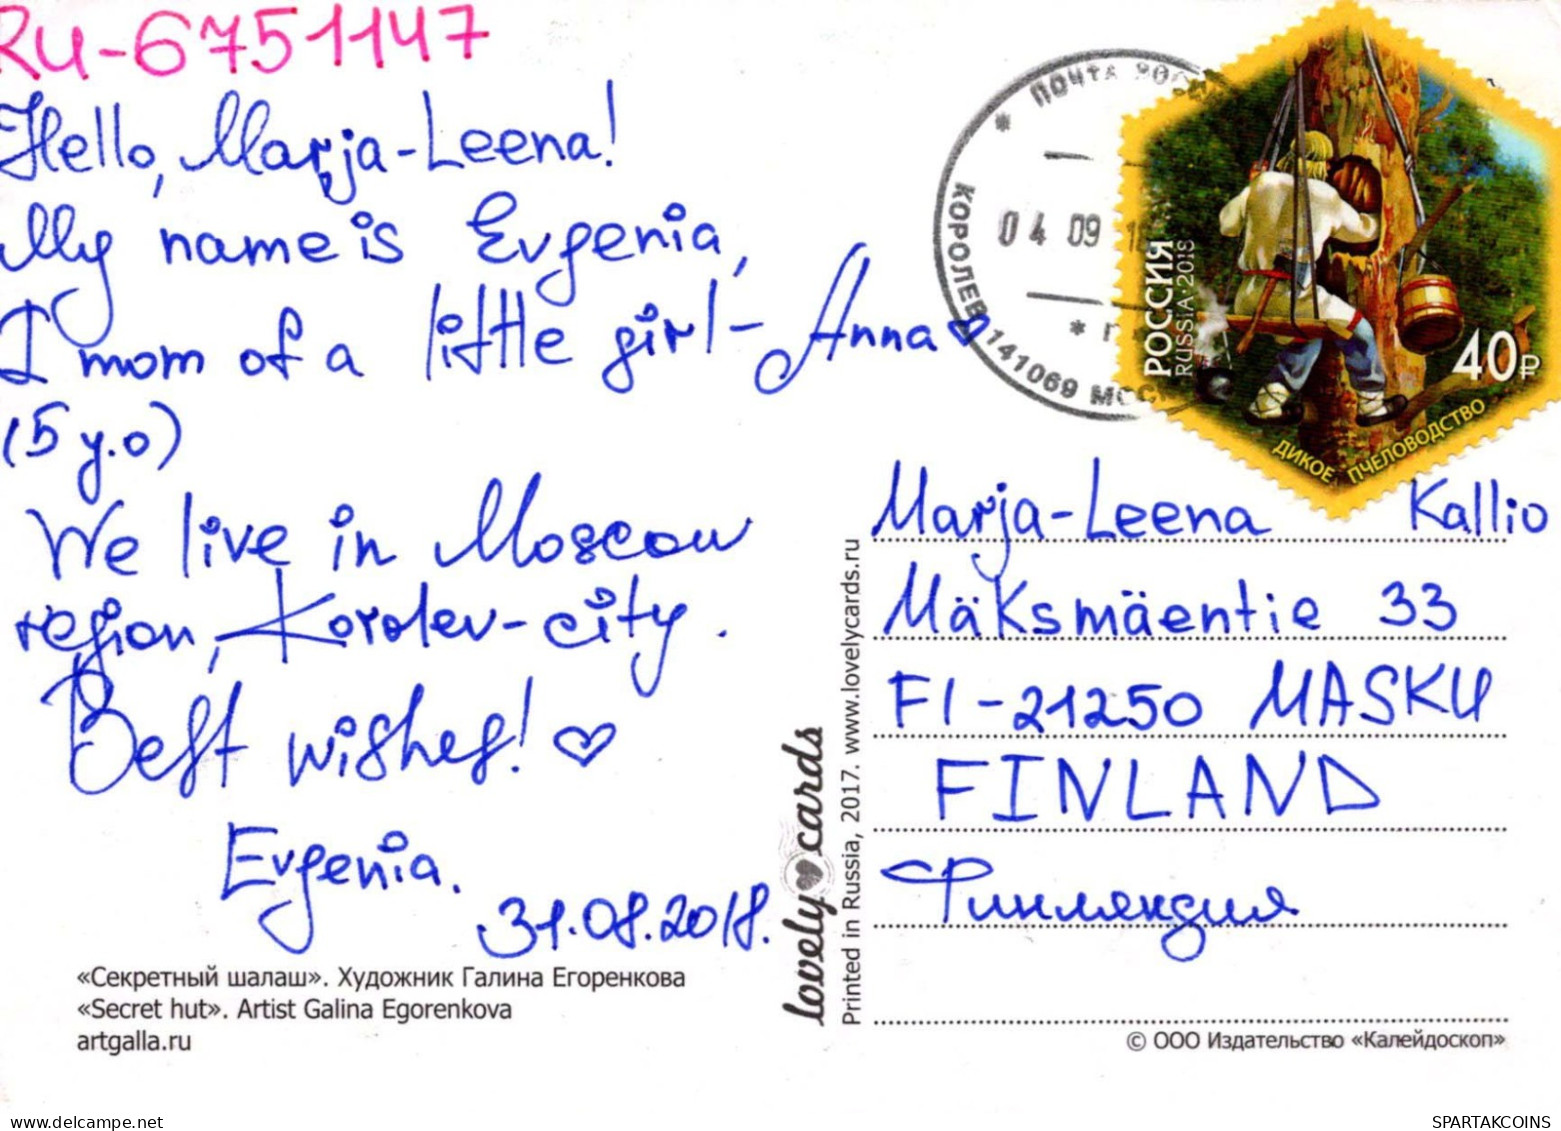 RU-6751147
Hello, Marja-Leena!
My name is Evgenia,
I mom of a little girl - Anna
(5 y.o)
We live in Moscow
region, Korolev-city.
Best wishes!
Evgenia.
31.08.2018.
«Секретный шалаш». Художник Галина Егоренкова
«Secret hut». Artist Galina Egorenkova
artgalla.ru
lovely cards
Printed in Russia, 2017. www.lovelycards.ru
* ПОЧТА
04 09
КОРОЛЕВ 141069
РОССИЯ
RUSSIA 2018
40₽
ДИКОЕ ПЧЕЛОВОДСТВО
Marja-Leena Kallio
Mäksmäentie 33
FI-21250 MASKU
FINLAND
Финляндия
© ООО Издательство «Калейдоскоп»
SPARTAKCOINS